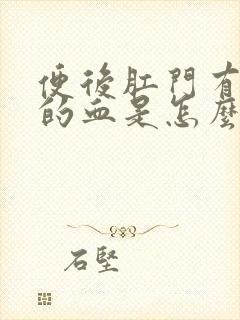 便後肛門有
的血是怎麼
石堅